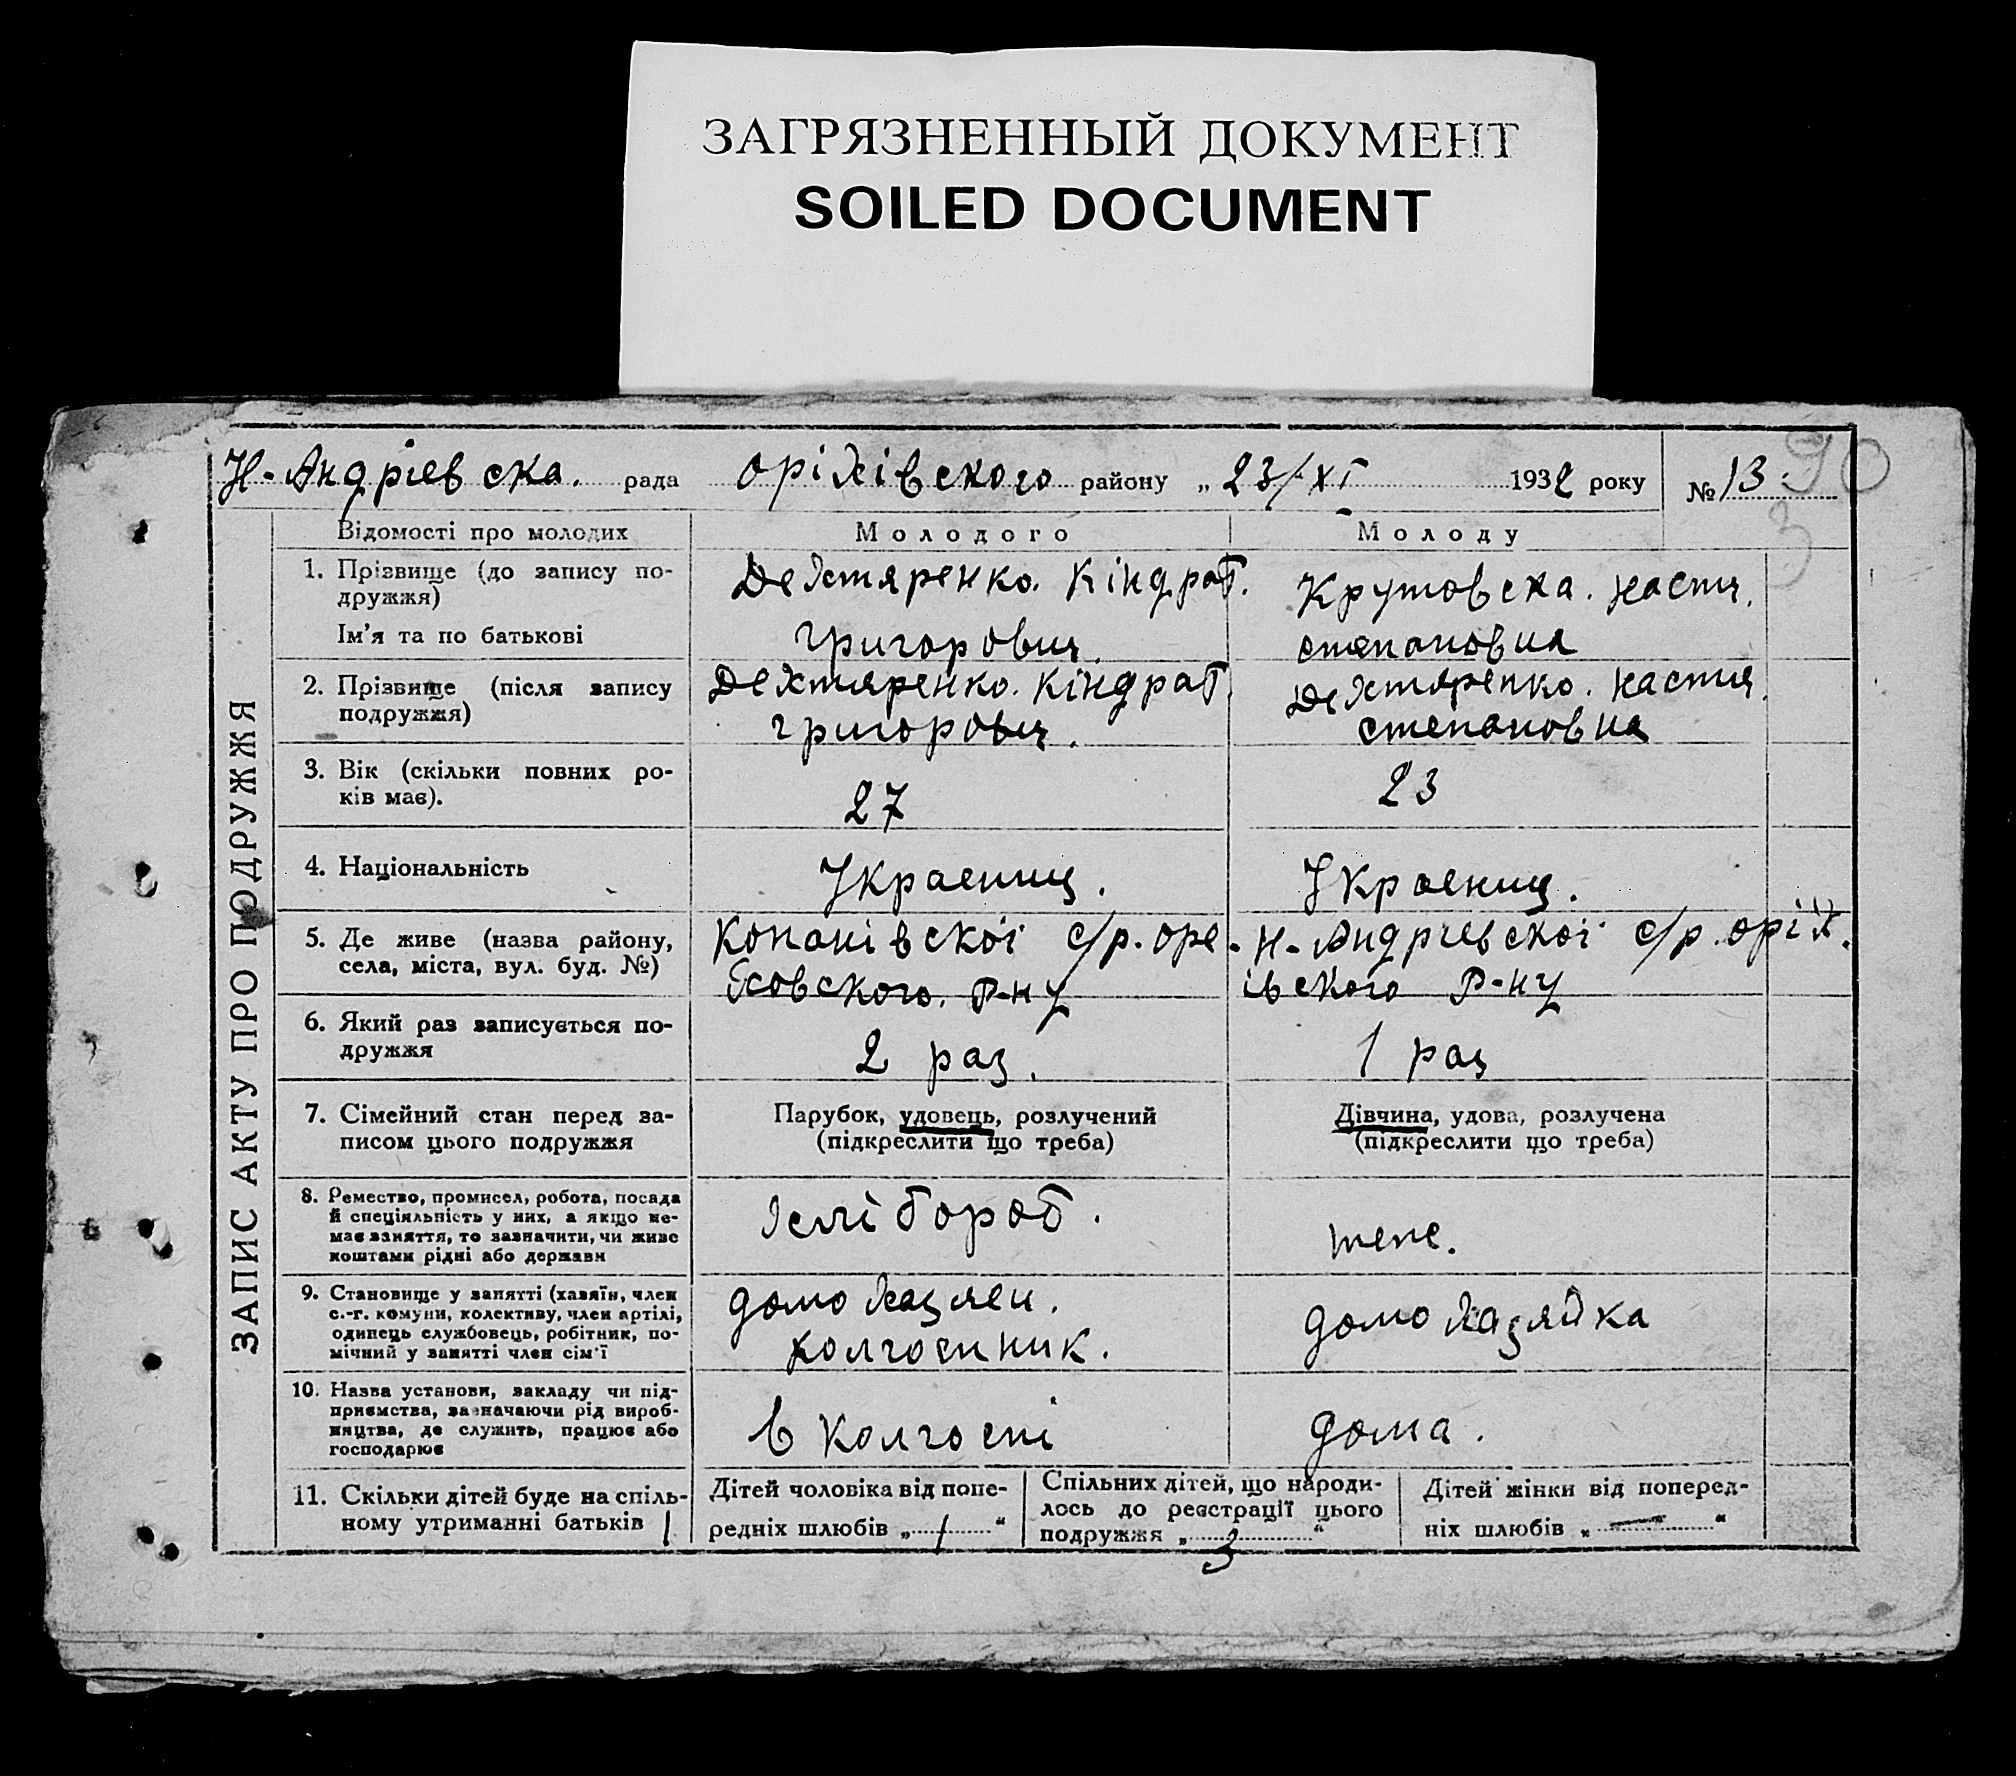 ЗАГРЯЗНЕННЫЙ ДОКУМЕНТ
SOILED DOCUMENT
Н-Андрієвска. рада Оріхівского району „ 23/-XI 1932 року № 13. 90
3
Відомості про молодих Молодого Молоду
1. Прізвище (до запису по-
дружжя)
Ім’я та по батькові
Дехтяренко. Кіндрат.
Григорович.
Крутовска. Настя.
степановна
2. Прізвище (після запису
подружжя)
Дехтяренко. Кіндрат.
григорович.
Дехтяренко. Настя.
степановна
3. Вік (скільки повних ро-
ків має).
27
23
4. Національність
Украениц.
Украениц.
5. Де живе (назва району,
села, міста, вул. буд. №)
Копанівскоі с/р. Оре-
ховского. Р-ну
Н-Андрієвскоі с/р. оріх.
івского Р-ну
6. Який раз записується по-
дружжя
2 раз.
1 раз
7. Сімейний стан перед за-
писом цього подружжя
Парубок, удовець, розлучений
(підкреслити що треба)
Дівчина, удова, розлучена
(підкреслити що треба)
8. Ремество, промисел, робота, посада
й спеціяльність у них, а якщо не-
має заняття, то зазначити, чи живе
коштами рідні або держави
хлібороб.
тепе.
9. Становище у занятті (хазяїн, член
с.-г. комуни, колективу, член артілі,
одинець службовець, робітник, по-
мічний у занятті член сім'ї
домохазяен.
колгосник.
домохазяйка
10. Назва установи, закладу чи під-
приємства, зазначаючи рід вироб-
ництва, де служить, працює або
господарює
в колгоспі
дома.
11. Скільки дітей буде на спіль-
ному утриманні батьків 1
Дітей чоловіка від попе-
редніх шлюбів „ 1 “
Спільних дітей, що народи-
лось до реєстрації цього
подружжя „ 3 “
Дітей жінки від поперед-
ніх шлюбів „ — “
ЗАПИС АКТУ ПРО ПОДРУЖЖЯ